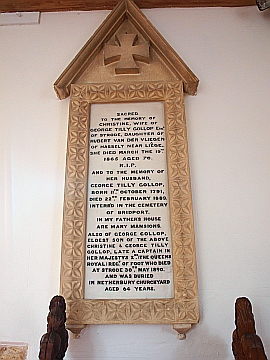 SACRED
TO THE MEMORY OF
CHRISTINE, WIFE OF
GEORGE TILLY GOLLOP ESQRE
OF STRODE, DAUGHTER OF
HUBERT VAN DER VLIEGEN
OF HASSELT NEAR LIÈGE.
SHE DIED MARCH THE 19TH
1865 AGED 70.
R.I.P.
AND TO THE MEMORY OF
HER HUSBAND,
GEORGE TILLY GOLLOP,
BORN 11TH OCTOBER 1791,
DIED 22ND FEBRUARY 1889.
INTERED IN THE CEMETERY
OF BRIDPORT.
IN MY FATHERS HOUSE
ARE MANY MANSIONS.
ALSO OF GEORGE GOLLOP,
ELDEST SON OF THE ABOVE
CHRISTINE & GEORGE TILLY
GOLLOP, LATE A CAPTAIN IN
HER MAJESTYS 2ND (THE QUEENS
ROYAL) REGT OF FOOT WHO DIED
AT STRODE 30TH MAY 1890.
AND WAS BURIED
IN NETHERBURY CHURCHYARD
AGED 64 YEARS.